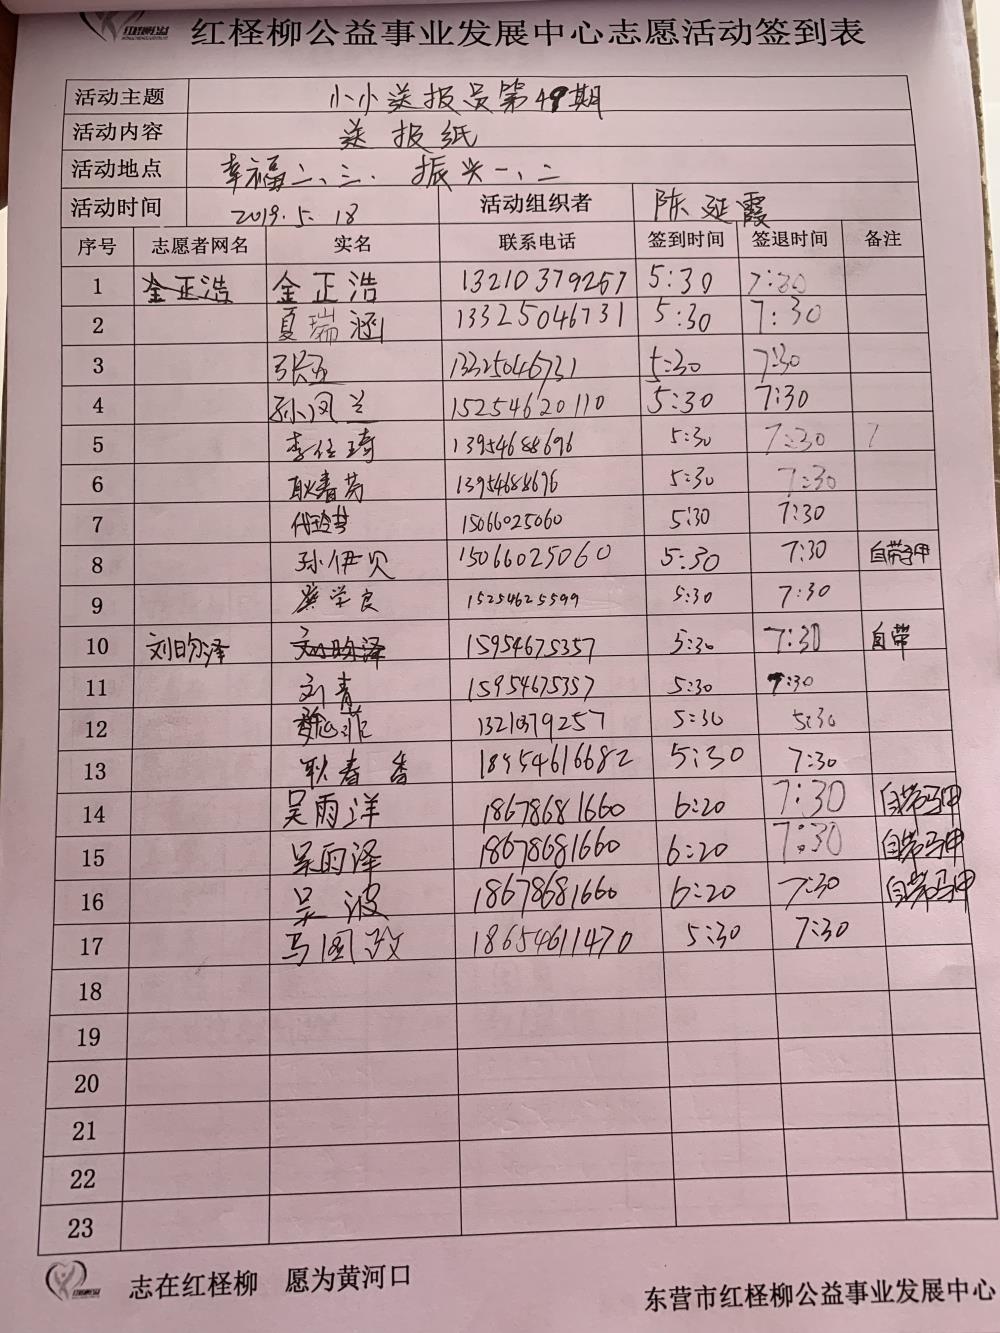 红柽柳公益事业发展中心志愿活动签到表
活动主题 小小送报员第49期
活动内容 送报纸
活动地点 幸福二、三、 振兴一、二
活动时间 2019.5.18 活动组织者 陈延霞
序号 志愿者网名 实名 联系电话 签到时间 签退时间 备注
1 金正浩 金正浩 13210379257 5:30 7:30
2 夏瑞涵 13325046731 5:30 7:30
3 13325046731 5:30 7:30
4 孙凤兰 15254620110 5:30 7:30
5 李任琦 13954688696 5:30 7:30
6 耿春芳 13954688696 5:30 7:30
7 代玲芳 15066025060 5:30 7:30
8 孙伊贝 15066025060 5:30 7:30 自带马甲
9 学良 15254625599 5:30 7:30
10 刘昀泽 刘昀泽 15954675357 5:30 7:30 自带
11 刘青 15954675357 5:30 7:30
12 1321079257 5:30 5:30
13 耿春香 18954616682 5:30 7:30
14 吴雨洋 18678681660 6:20 7:30 自带马甲
15 吴雨泽 18678681660 6:20 7:30 自带马甲
16 吴波 18678681660 6:20 7:30 自带马甲
17 马国政 18654611470 5:30 7:30
18
19
20
21
22
23
志在红柽柳 愿为黄河口
东营市红柽柳公益事业发展中心